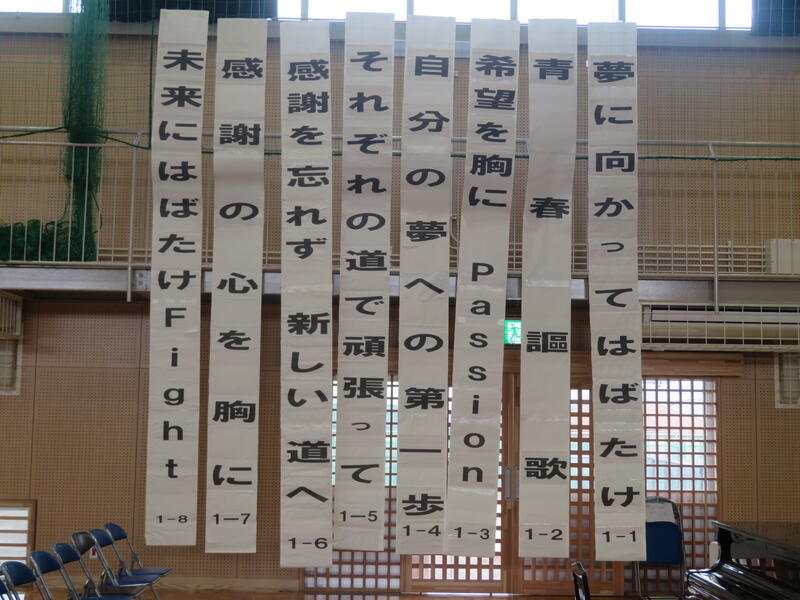 夢に向かってはばたけ
1-1
青春謳歌
1-2
希望を胸に Passion
1-3
自分の夢への第一歩
1-4
それぞれの道で頑張って
1-5
感謝を忘れず 新しい道へ
1-6
感謝の心を胸に
1-7
未来にはばたけFight
1-8